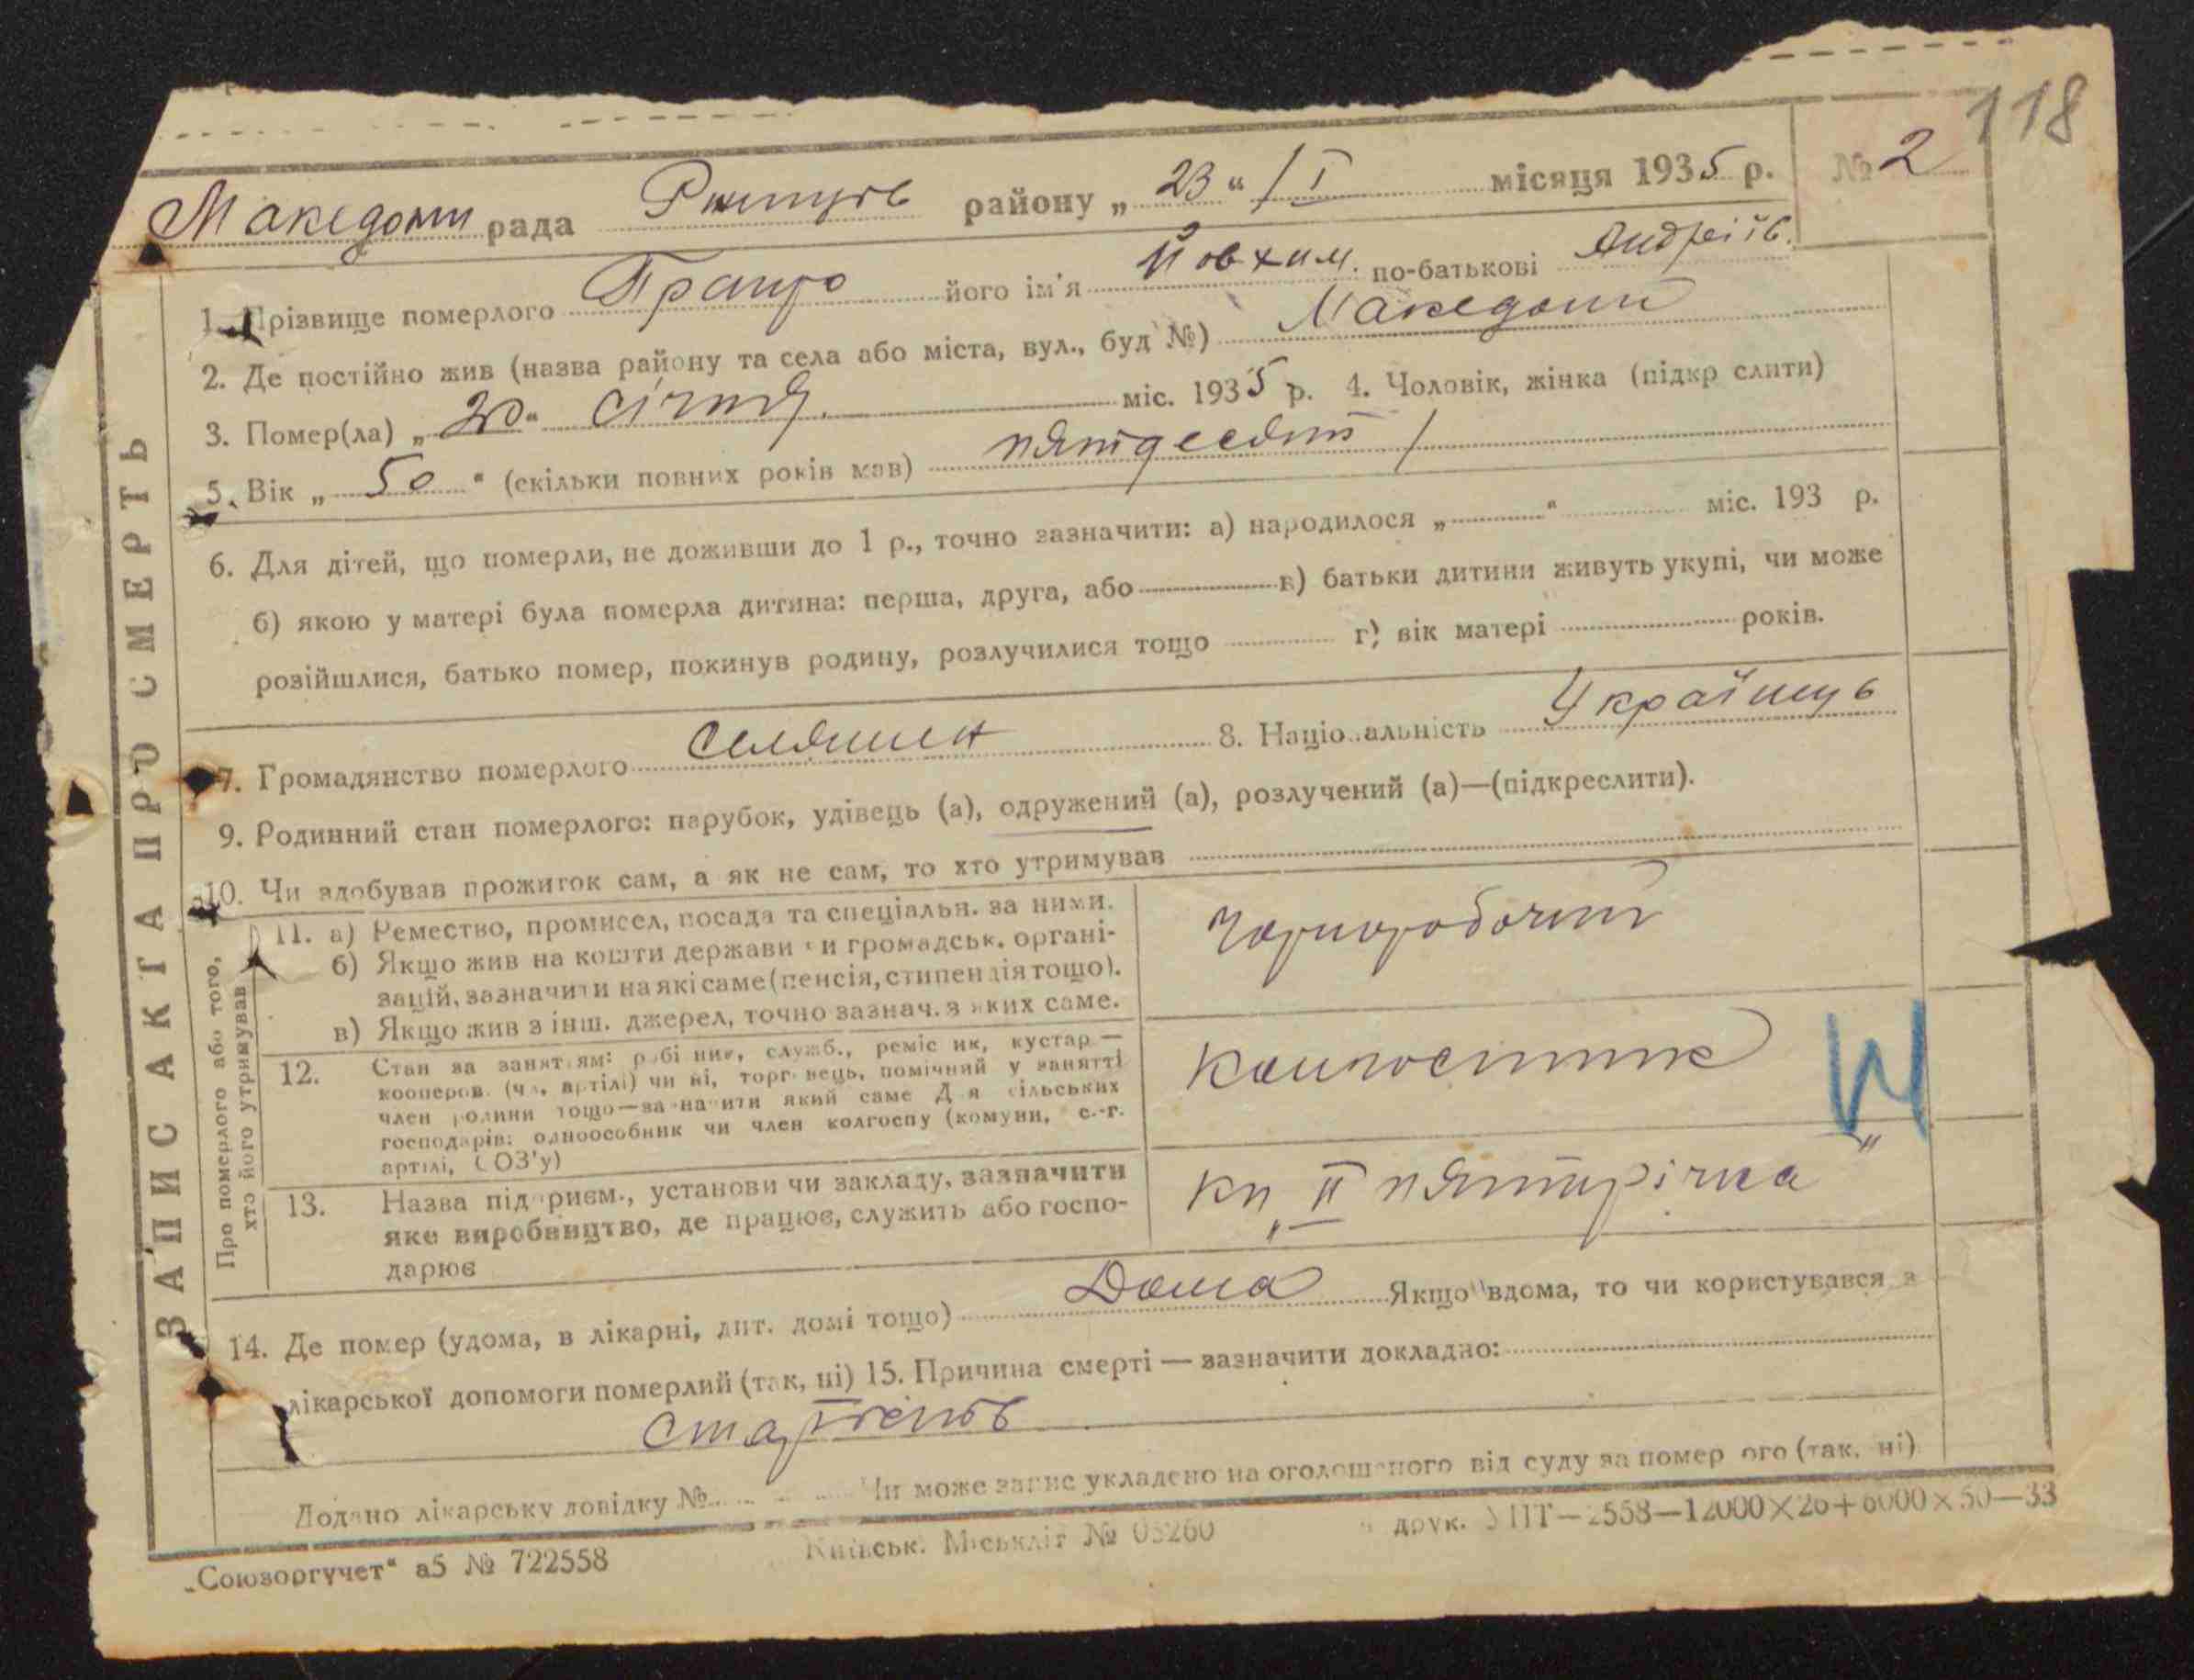 118
Македони рада Ржищів району „ 23 “ / I місяця 1935 р. № 2
1. Прізвище померлого його ім'я Йовхим. по-батькові Андріїв.
2. Де постійно жив (назва району та села або міста, вул., буд №) Македони
3. Помер(ла) „ 20 “ січня. міс. 1935 р. 4. Чоловік, жінка (підкр слити)
5. Вік „ 50 “ (скільки повних років мав) пятдесят /
6. Для дітей, що померли, не доживши до 1 р., точно зазначити: а) народилося „ “ міс. 193 р.
б) якою у матері була померла дитина: перша, друга, або в) батьки дитини живуть укупі, чи може
розійшлися, батько помер, покинув родину, розлучилися тощо г) вік матері років.
7. Громадянство померлого селянин 8. Націо альність Українць
9. Родинний стан померлого: парубок, удівець (а), одружений (а), розлучений (а)—(підкреслити).
10. Чи здобував прожиток сам, а як не сам, то хто утримував
ЗАПИС АКТА ПРО СМЕРТЬ
Про померлого або того,
хто його утримував
11. а) Ремество, промисел, посада та спеціальн. за ними.
б) Якщо жив на кошти держави чи громадськ. органі-
зацій, зазначити на які саме (пенсія, стипендія тощо).
в) Якщо жив з інш. джерел, точно зазнач. з яких саме.
чорноробочий
12. Стан за занят ям: робі ник, служб., реміс ик, кустар —
кооперов. (чл. артілі) чи ні, торг вець, помічний у занятті
член родини тощо—зазначити який саме Д я сільських
господарів: одноособник чи член колгоспу (комуни, с.-г.
артілі, СОЗ'у)
колгоспник
13. Назва підприєм., установи чи закладу, зазначити
яке виробництво, де працює, служить або госпо-
дарює
кп „II пятирічка“
14. Де помер (удома, в лікарні, дит. домі тощо) Дома Якщо вдома, то чи користувався з
лікарської допомоги померлий (так, ні) 15. Причина смерті — зазначити докладно:
старість
Додано лікарську довідку № Чи може запис укладено на оголошеного від суду за помер ого (так, ні)
„Союзоргучет“ а5 № 722558 Київськ. Міськліт № 03260 друк. УПТ—2558—12000×26+6000×50—33